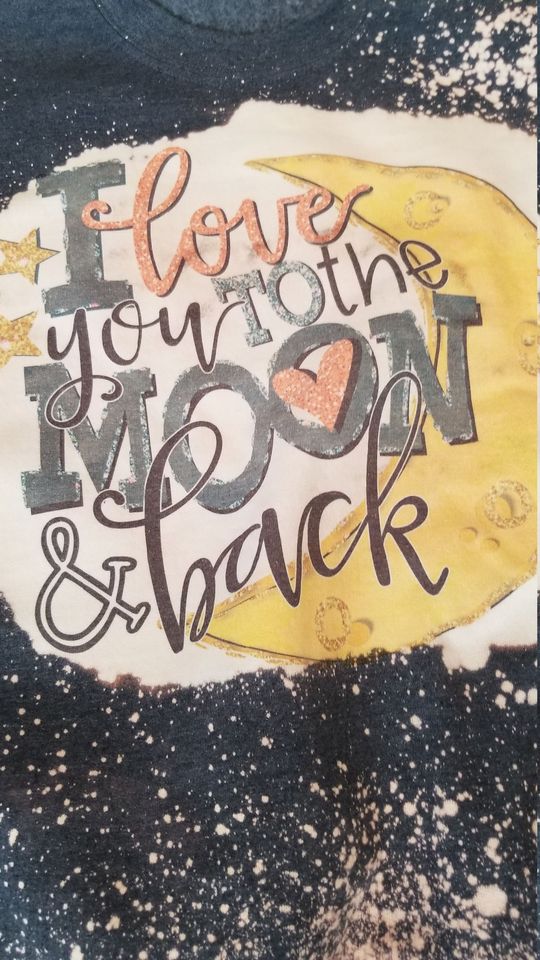 I love
you TO the
MOON
& back